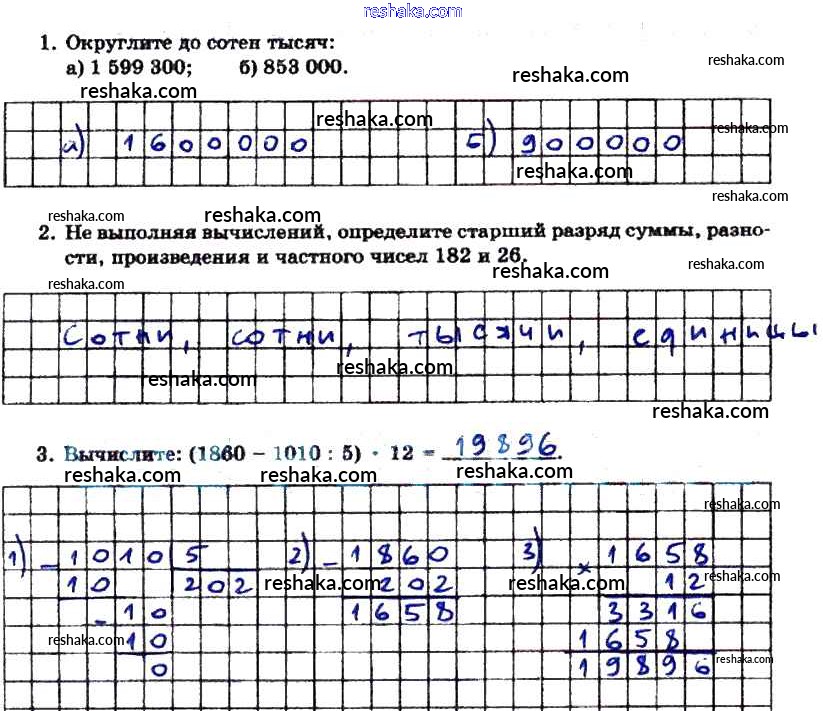 reshaka.com
1. Округлите до сотен тысяч:
reshaka.com
а) 1 599 300; б) 853 000.
reshaka.com
reshaka.com
reshaka.com
reshaka.com
а) 1600000 б) 900000
reshaka.com
reshaka.com
reshaka.com reshaka.com
2. Не выполняя вычислений, определите старший разряд суммы, разно-
сти, произведения и частного чисел 182 и 26.
reshaka.com
reshaka.com
reshaka.com
сотни, сотни, тысячи, единицы
reshaka.com reshaka.com
reshaka.com
3. Вычислите: (1860 – 1010 : 5) · 12 = 19896.
reshaka.com reshaka.com reshaka.com
reshaka.com
1) – 1010 5 2) – 1860 3) × 1658
10 202 202 12
reshaka.com reshaka.com reshaka.com
– 10 1658 3316
reshaka.com
10 1658
0 19896
reshaka.com